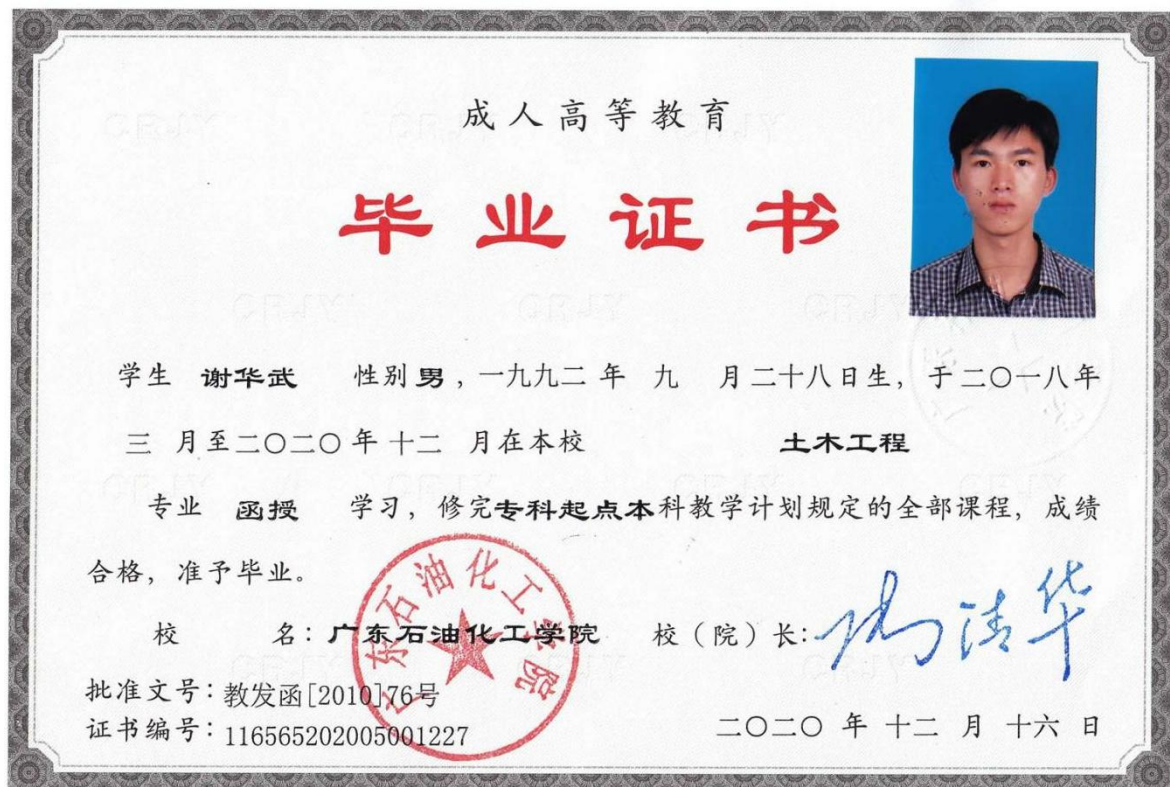 成人高等教育
毕业证书
学生 谢华武 性别 男，一九九二 年 九 月二十八日生，于二〇一八年
三 月至二〇二〇年 十二 月在本校 土木工程
专业 函授 学习，修完专科起点本科教学计划规定的全部课程，成绩
合格，准予毕业。
校 名：广东石油化工学院 校（院）长：
批准文号：教发函[2010]76号
证书编号：116565202005001227
二〇二〇 年 十二 月 十六 日
广东石油化工学院